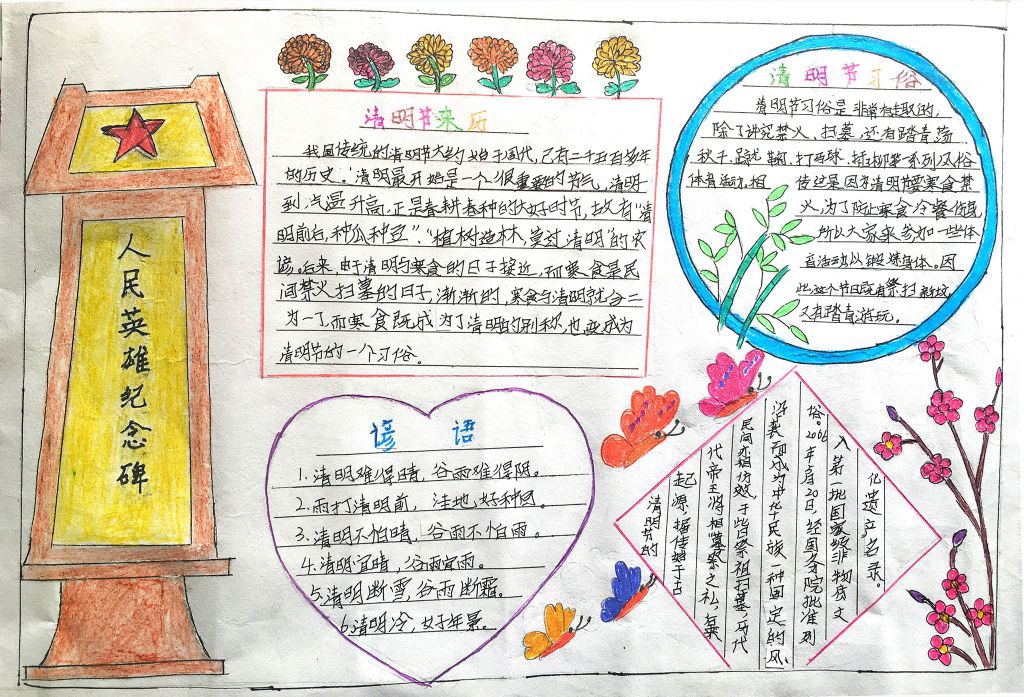 人民英雄纪念碑
清明节来历
我国传统的清明节大约始于周代,已有二千五百多年
的历史。清明最开始是一个很重要的节气,清明一
到,气温升高,正是春耕春种的大好时节,故有“清
明前后,种瓜种豆”、“植树造林,莫过清明”的农
谚。后来,由于清明与寒食的日子接近,而寒食是民
间禁火扫墓的日子,渐渐的,寒食与清明就合二
为一了,而寒食既成为了清明的别称,也变成为
清明节的一个习俗。
清明节习俗
清明节习俗是非常有趣的,
除了讲究禁火、扫墓,还有踏青、荡
秋千、蹴鞠、打马球、插柳等系列风俗
体育活动。相传这是因为清明节要寒食禁
火,为了防止寒食冷餐伤身,
所以大家来参加一些体
育活动以锻炼身体。因
此,这个节日既有祭扫新坟
又有踏青游玩。
谚语
1.清明难得晴,谷雨难得阴。
2.雨打清明前,洼地好种田。
3.清明不怕晴,谷雨不怕雨。
4.清明宜晴,谷雨宜雨。
5.清明断雪,谷雨断霜。
6.清明冷,好年景。
清明节的
起源,据传始于古
代帝王将相“墓祭”之礼,后来
民间亦相仿效,于此日祭祖扫墓,历代
沿袭而成为中华民族一种固定的风
俗。2006年5月20日,经国务院批准列
入第一批国家级非物质文
化遗产名录。